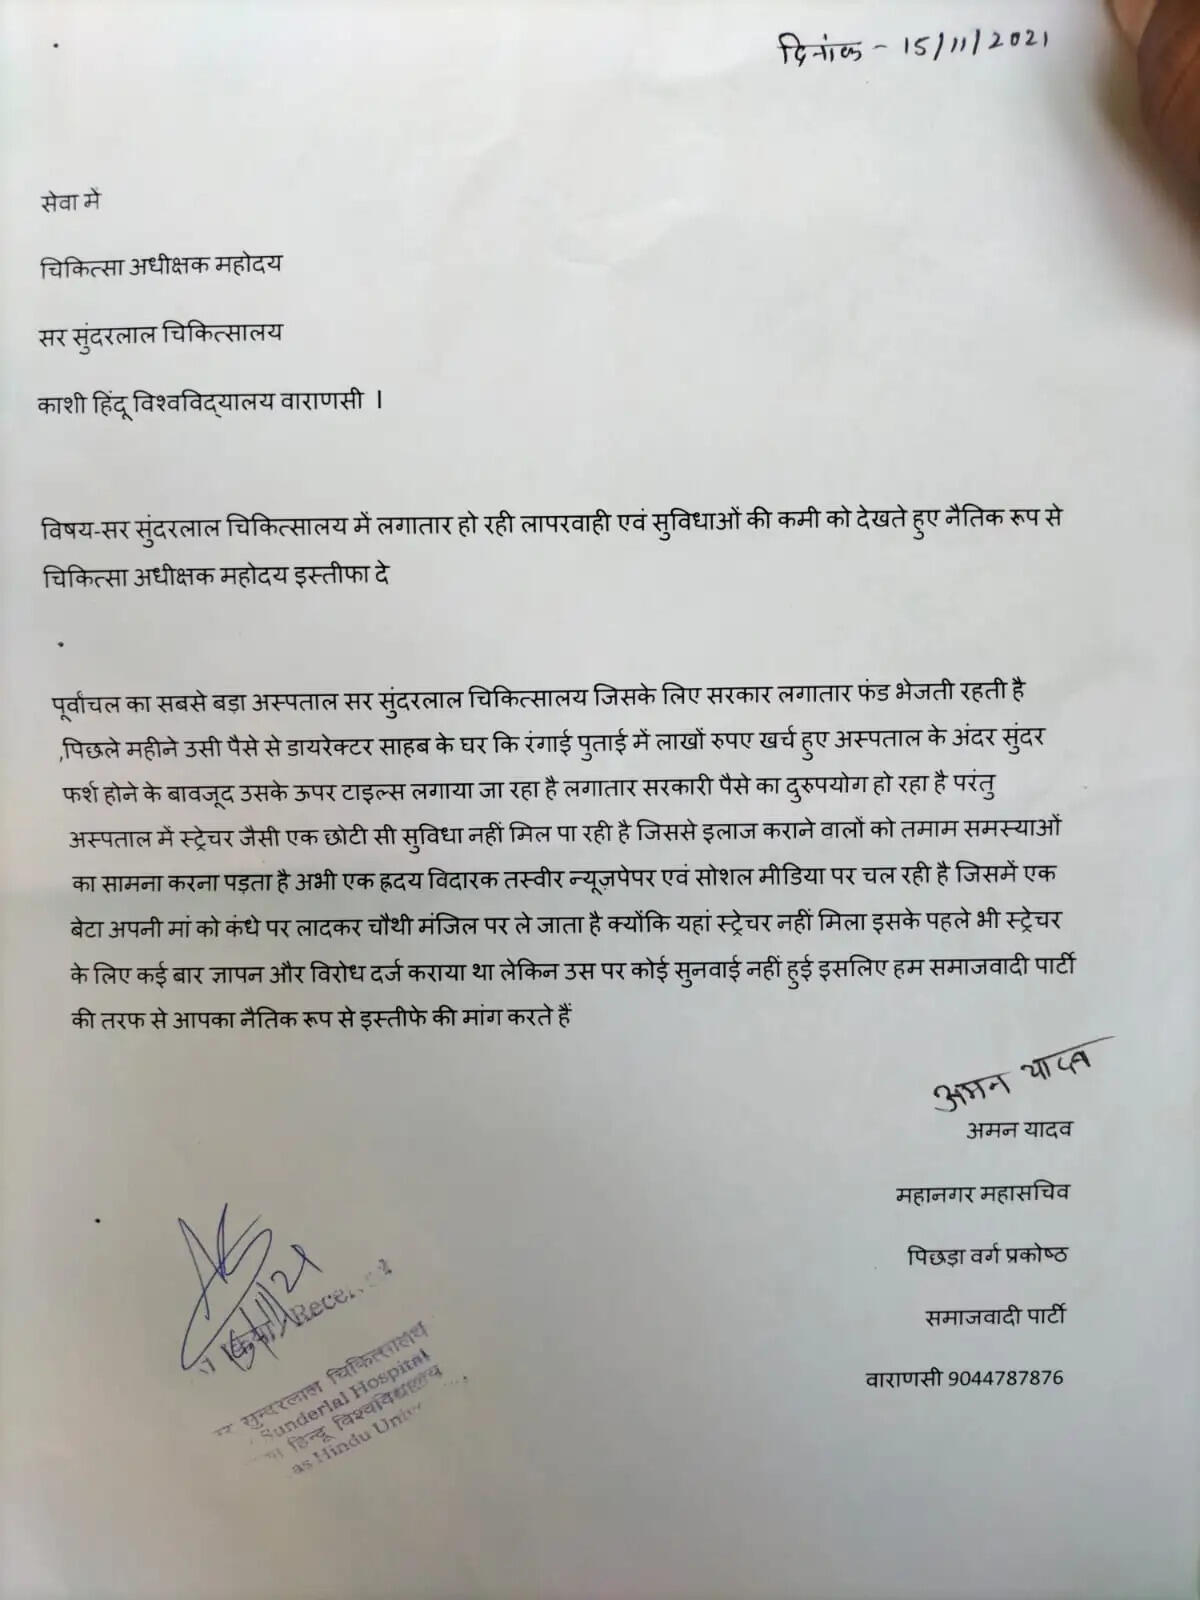 दिनांक - 15/11/2021
सेवा में
चिकित्सा अधीक्षक महोदय
सर सुंदरलाल चिकित्सालय
काशी हिंदू विश्वविद्यालय वाराणसी ।
विषय-सर सुंदरलाल चिकित्सालय में लगातार हो रही लापरवाही एवं सुविधाओं की कमी को देखते हुए नैतिक रूप से
चिकित्सा अधीक्षक महोदय इस्तीफा दे
पूर्वांचल का सबसे बड़ा अस्पताल सर सुंदरलाल चिकित्सालय जिसके लिए सरकार लगातार फंड भेजती रहती है
,पिछले महीने उसी पैसे से डायरेक्टर साहब के घर कि रंगाई पुताई में लाखों रुपए खर्च हुए अस्पताल के अंदर सुंदर
फर्श होने के बावजूद उसके ऊपर टाइल्स लगाया जा रहा है लगातार सरकारी पैसे का दुरुपयोग हो रहा है परंतु
अस्पताल में स्ट्रेचर जैसी एक छोटी सी सुविधा नहीं मिल पा रही है जिससे इलाज कराने वालों को तमाम समस्याओं
का सामना करना पड़ता है अभी एक ह्रदय विदारक तस्वीर न्यूज़पेपर एवं सोशल मीडिया पर चल रही है जिसमें एक
बेटा अपनी मां को कंधे पर लादकर चौथी मंजिल पर ले जाता है क्योंकि यहां स्ट्रेचर नहीं मिला इसके पहले भी स्ट्रेचर
के लिए कई बार ज्ञापन और विरोध दर्ज कराया था लेकिन उस पर कोई सुनवाई नहीं हुई इसलिए हम समाजवादी पार्टी
की तरफ से आपका नैतिक रूप से इस्तीफे की मांग करते हैं
अमन यादव
अमन यादव
महानगर महासचिव
पिछड़ा वर्ग प्रकोष्ठ
समाजवादी पार्टी
वाराणसी 9044787876
सुन्दरलाल चिकित्सालय
Sunderlal Hospital
हिन्दू विश्वविद्यालय
Hindu